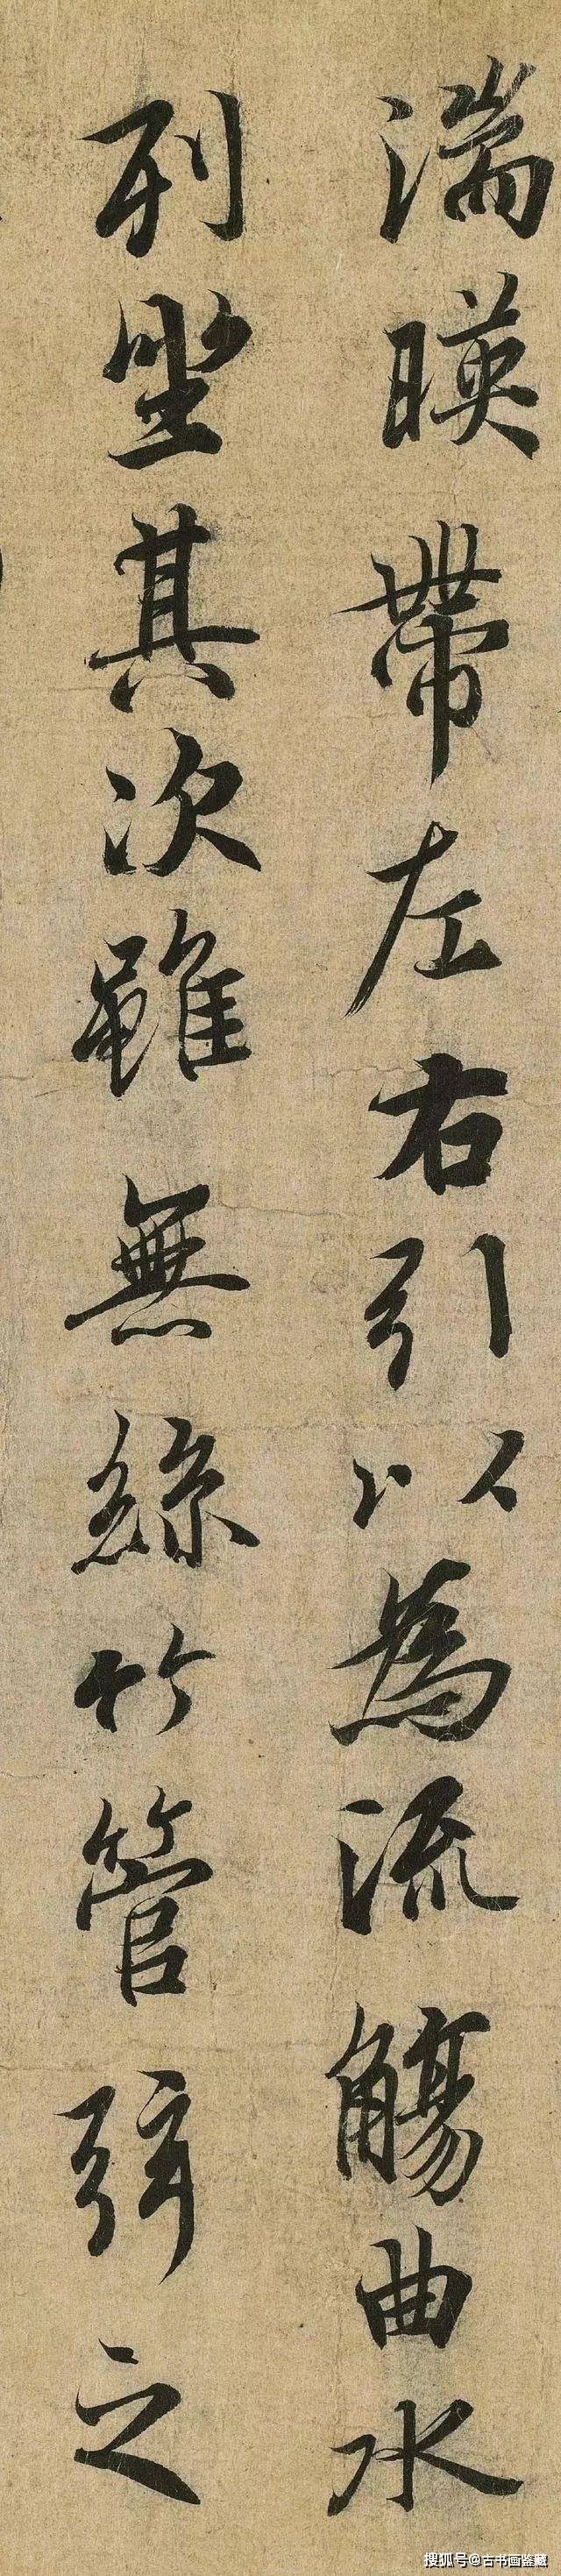 湍暎帶左右引以為流觴曲水
列坐其次雖無絲竹管弦之
搜狐号@古书画鉴藏